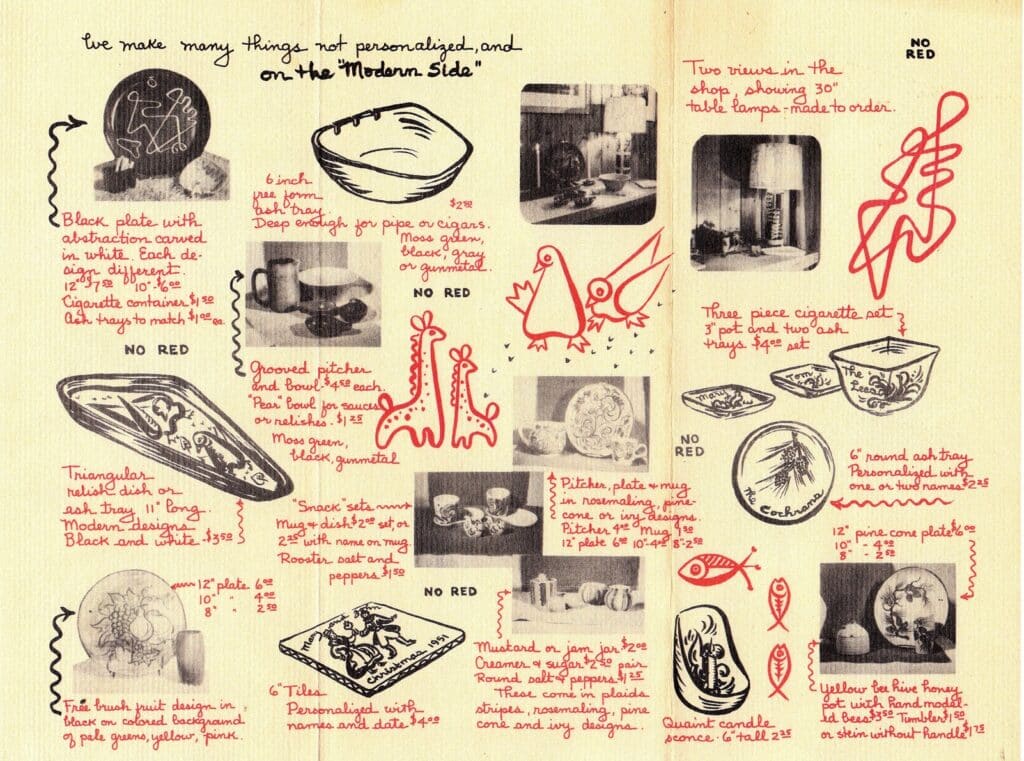 We make many things not personalized, and
on the "Modern Side"
NO
RED
Black plate with
abstraction carved
in white. Each de-
sign different.
12" $7.50 10" $6.00
Cigarette container $1.50
Ash trays to match $1.00 ea.
NO RED
6 inch
free form
ash tray. $2.50
Deep enough for pipe or cigars.
Moss green,
black, gray
or gunmetal.
NO RED
Two views in the
shop, showing 30"
table lamps - made to order.
Grooved pitcher
and bowl. $4.50 each.
"Pear" bowl for sauces
or relishes. $1.25
Moss green,
black, gunmetal
Three piece cigarette set
3" pot and two ash
trays $4.00 set
Mary
Tom
The
Lees
NO
RED
Triangular
relish dish or
ash tray 11" long.
Modern designs.
Black and white. $3.50
"Snack" sets
Mug & dish $2.00 set, or
2.25 with name on mug.
Rooster salt and
peppers $1.50
NO RED
Pitcher, plate & mug
in rosemaling, pine-
cone or ivy designs.
Pitcher 4.00 Mug 1.50
12" plate 6.00 10"-4.00 8"-2.50
The Cochrans
6" round ash tray
Personalized with
one or two names $2.25
12" pine cone plate $6.00
10" - 4.00
8" - 2.50
12" plate 6.00
10" " 4.00
8" " 2.50
Free brush fruit design in
black on colored background
of pale greens, yellow, pink.
Mary and John
Christmas 1951
6" Tiles
Personalized with
names and date $4.00
Mustard or jam jar $2.00
Creamer & sugar $2.50 pair
Round salt & peppers $1.25
These come in plaids
stripes, rosemaling, pine
cone and ivy designs.
Quaint candle
sconce. 6" tall 2.25
Yellow bee hive honey
pot with hand model-
ed bees $3.50 Tumbler $1.50
or stein without handle $1.75